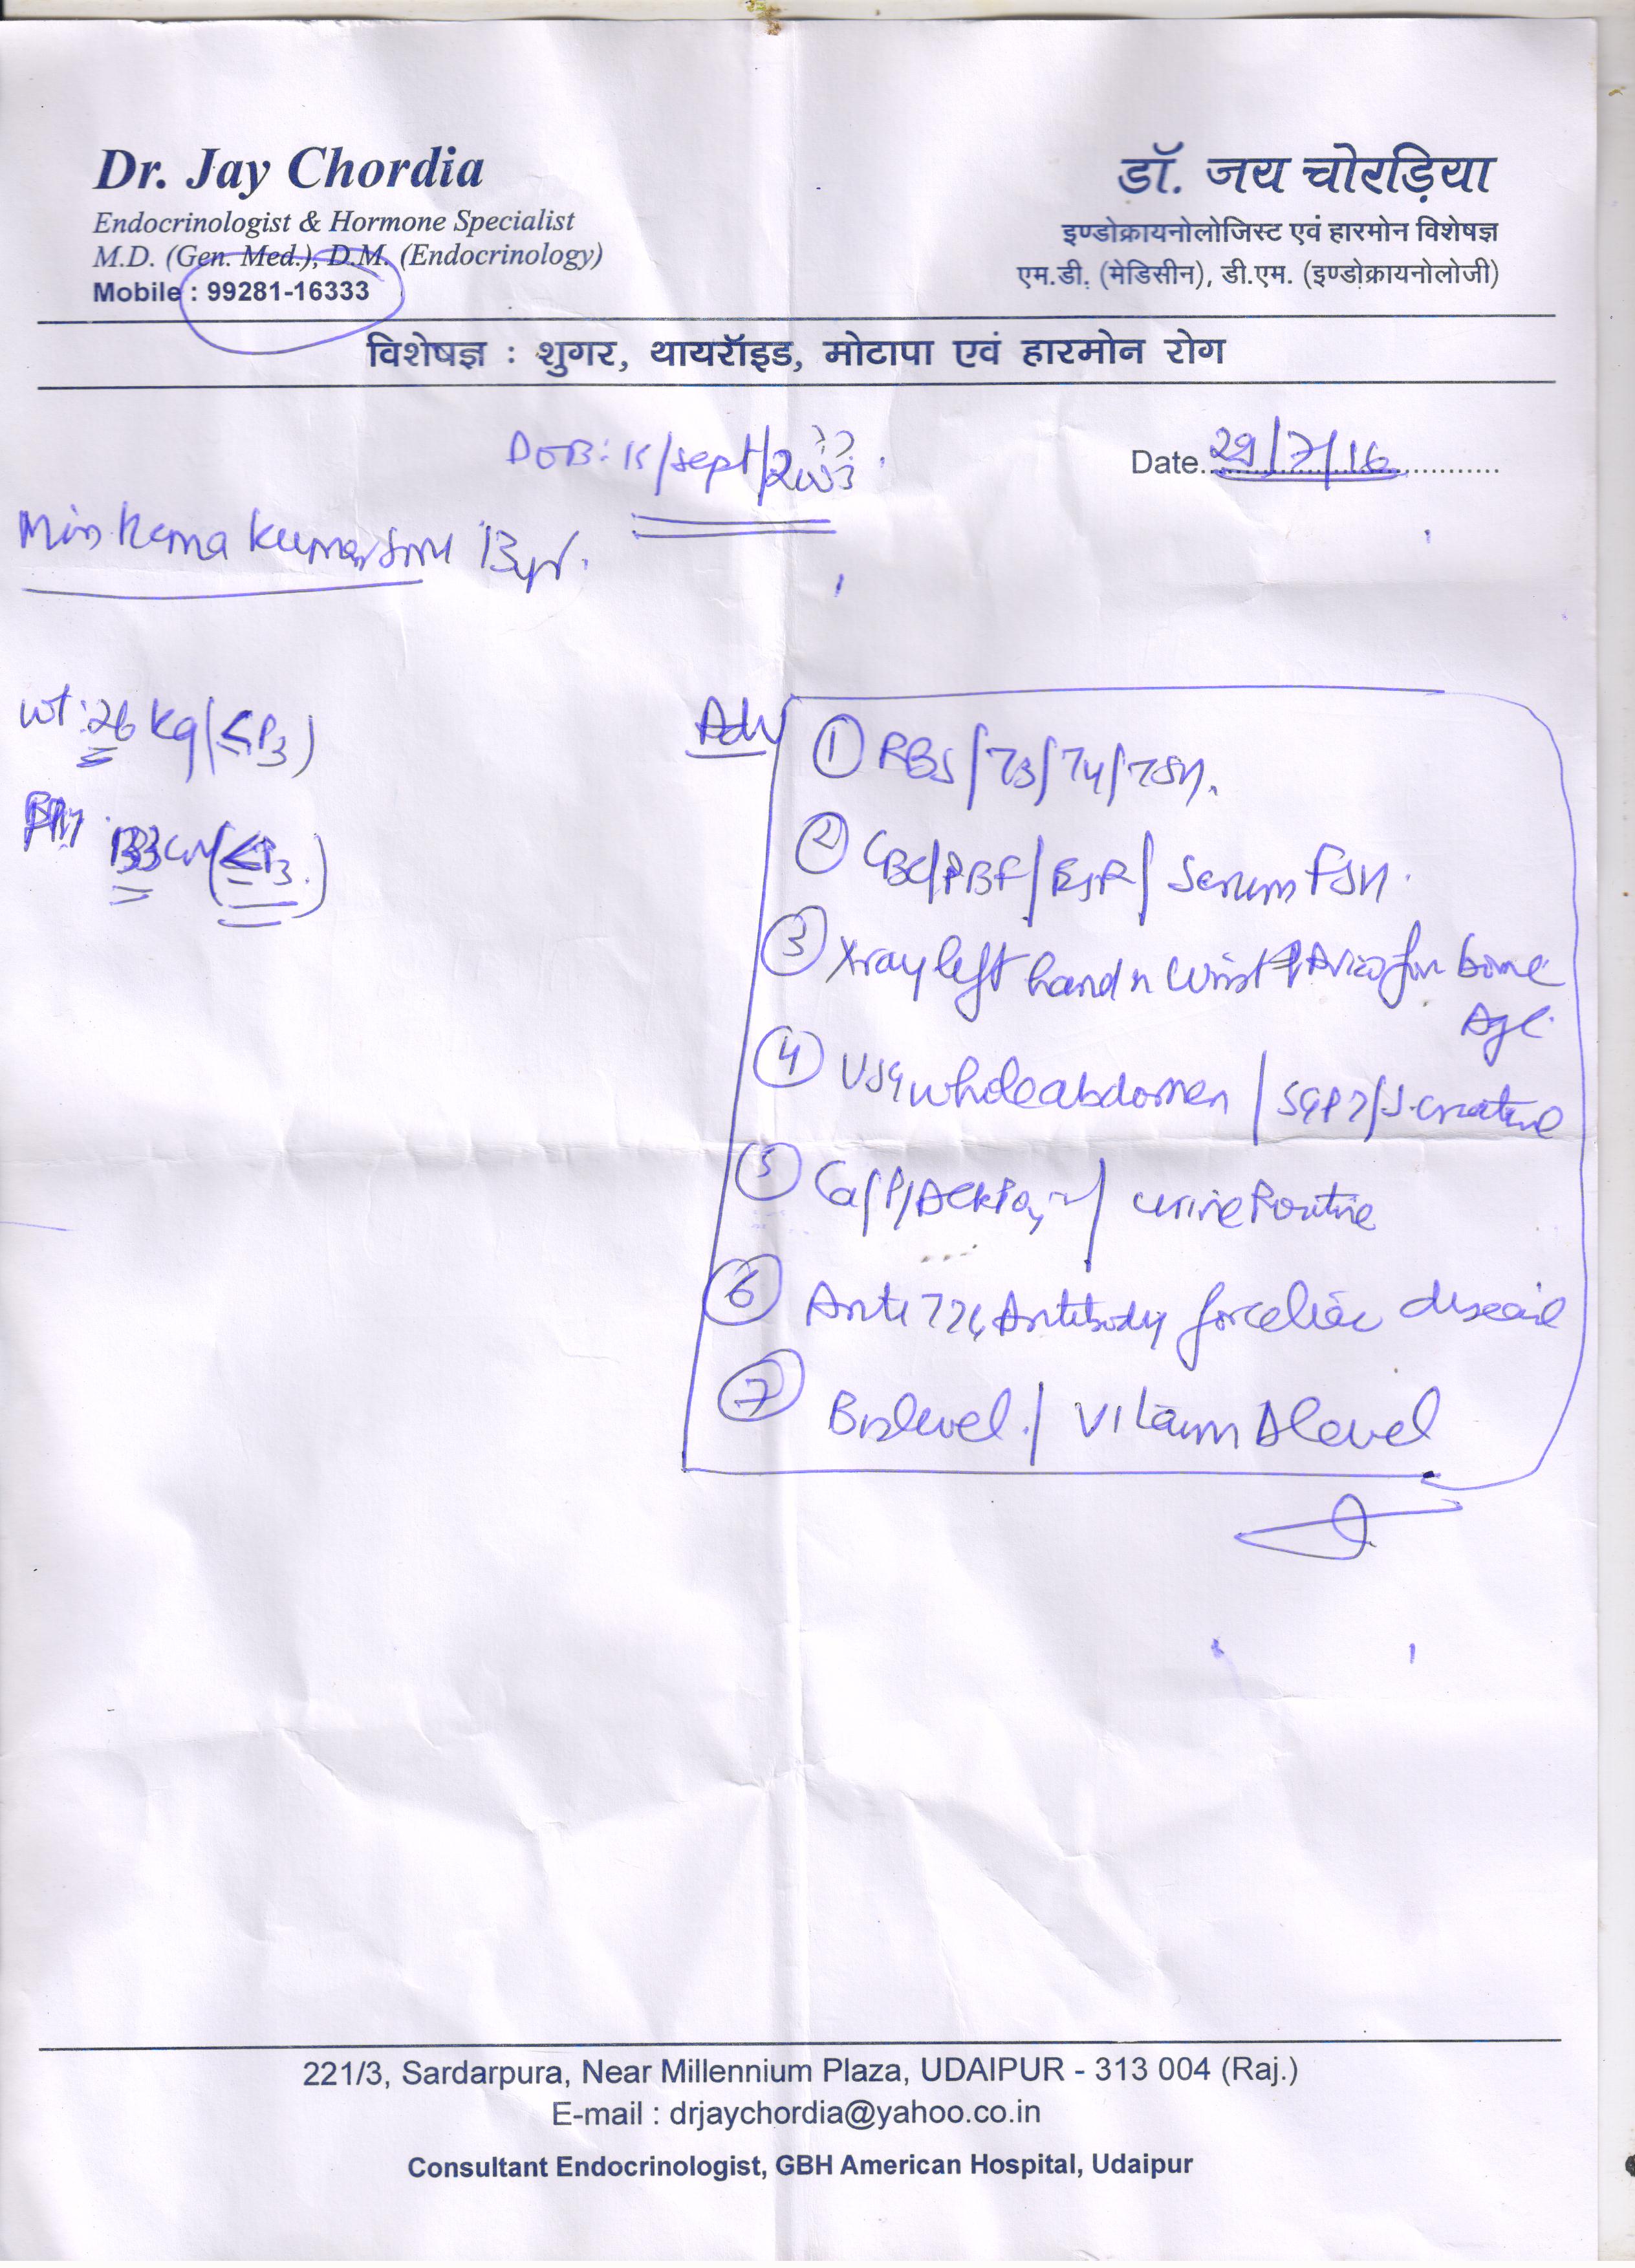 Dr. Jay Chordia
Endocrinologist & Hormone Specialist
M.D. (Gen. Med.), D.M. (Endocrinology)
Mobile : 99281-16333
डॉ. जय चोरड़िया
इण्डोक्रायनोलोजिस्ट एवं हारमोन विशेषज्ञ
एम.डी. (मेडिसीन), डी.एम. (इण्डोक्रायनोलोजी)
विशेषज्ञ : शुगर, थायरॉइड, मोटापा एवं हारमोन रोग
DOB: 15/Sept/2003
Date 29/7/16
Miss Hema 13yr.
wt: 26 kg (≤P3)
133 cm (≤P3)
Adv
① RBS/T3/T4/TSH.
② CBC/PBF/ESR/ Serum FSH.
③ Xray left hand n wrist for bone
Age.
④ USG whole abdomen / SGPT/S.creatine
⑤ Ca/P/ / urine Routine
⑥ Anti TTG Antibody for celiac disease
⑦ B12 level./ Vitamin D level
221/3, Sardarpura, Near Millennium Plaza, UDAIPUR - 313 004 (Raj.)
E-mail : drjaychordia@yahoo.co.in
Consultant Endocrinologist, GBH American Hospital, Udaipur